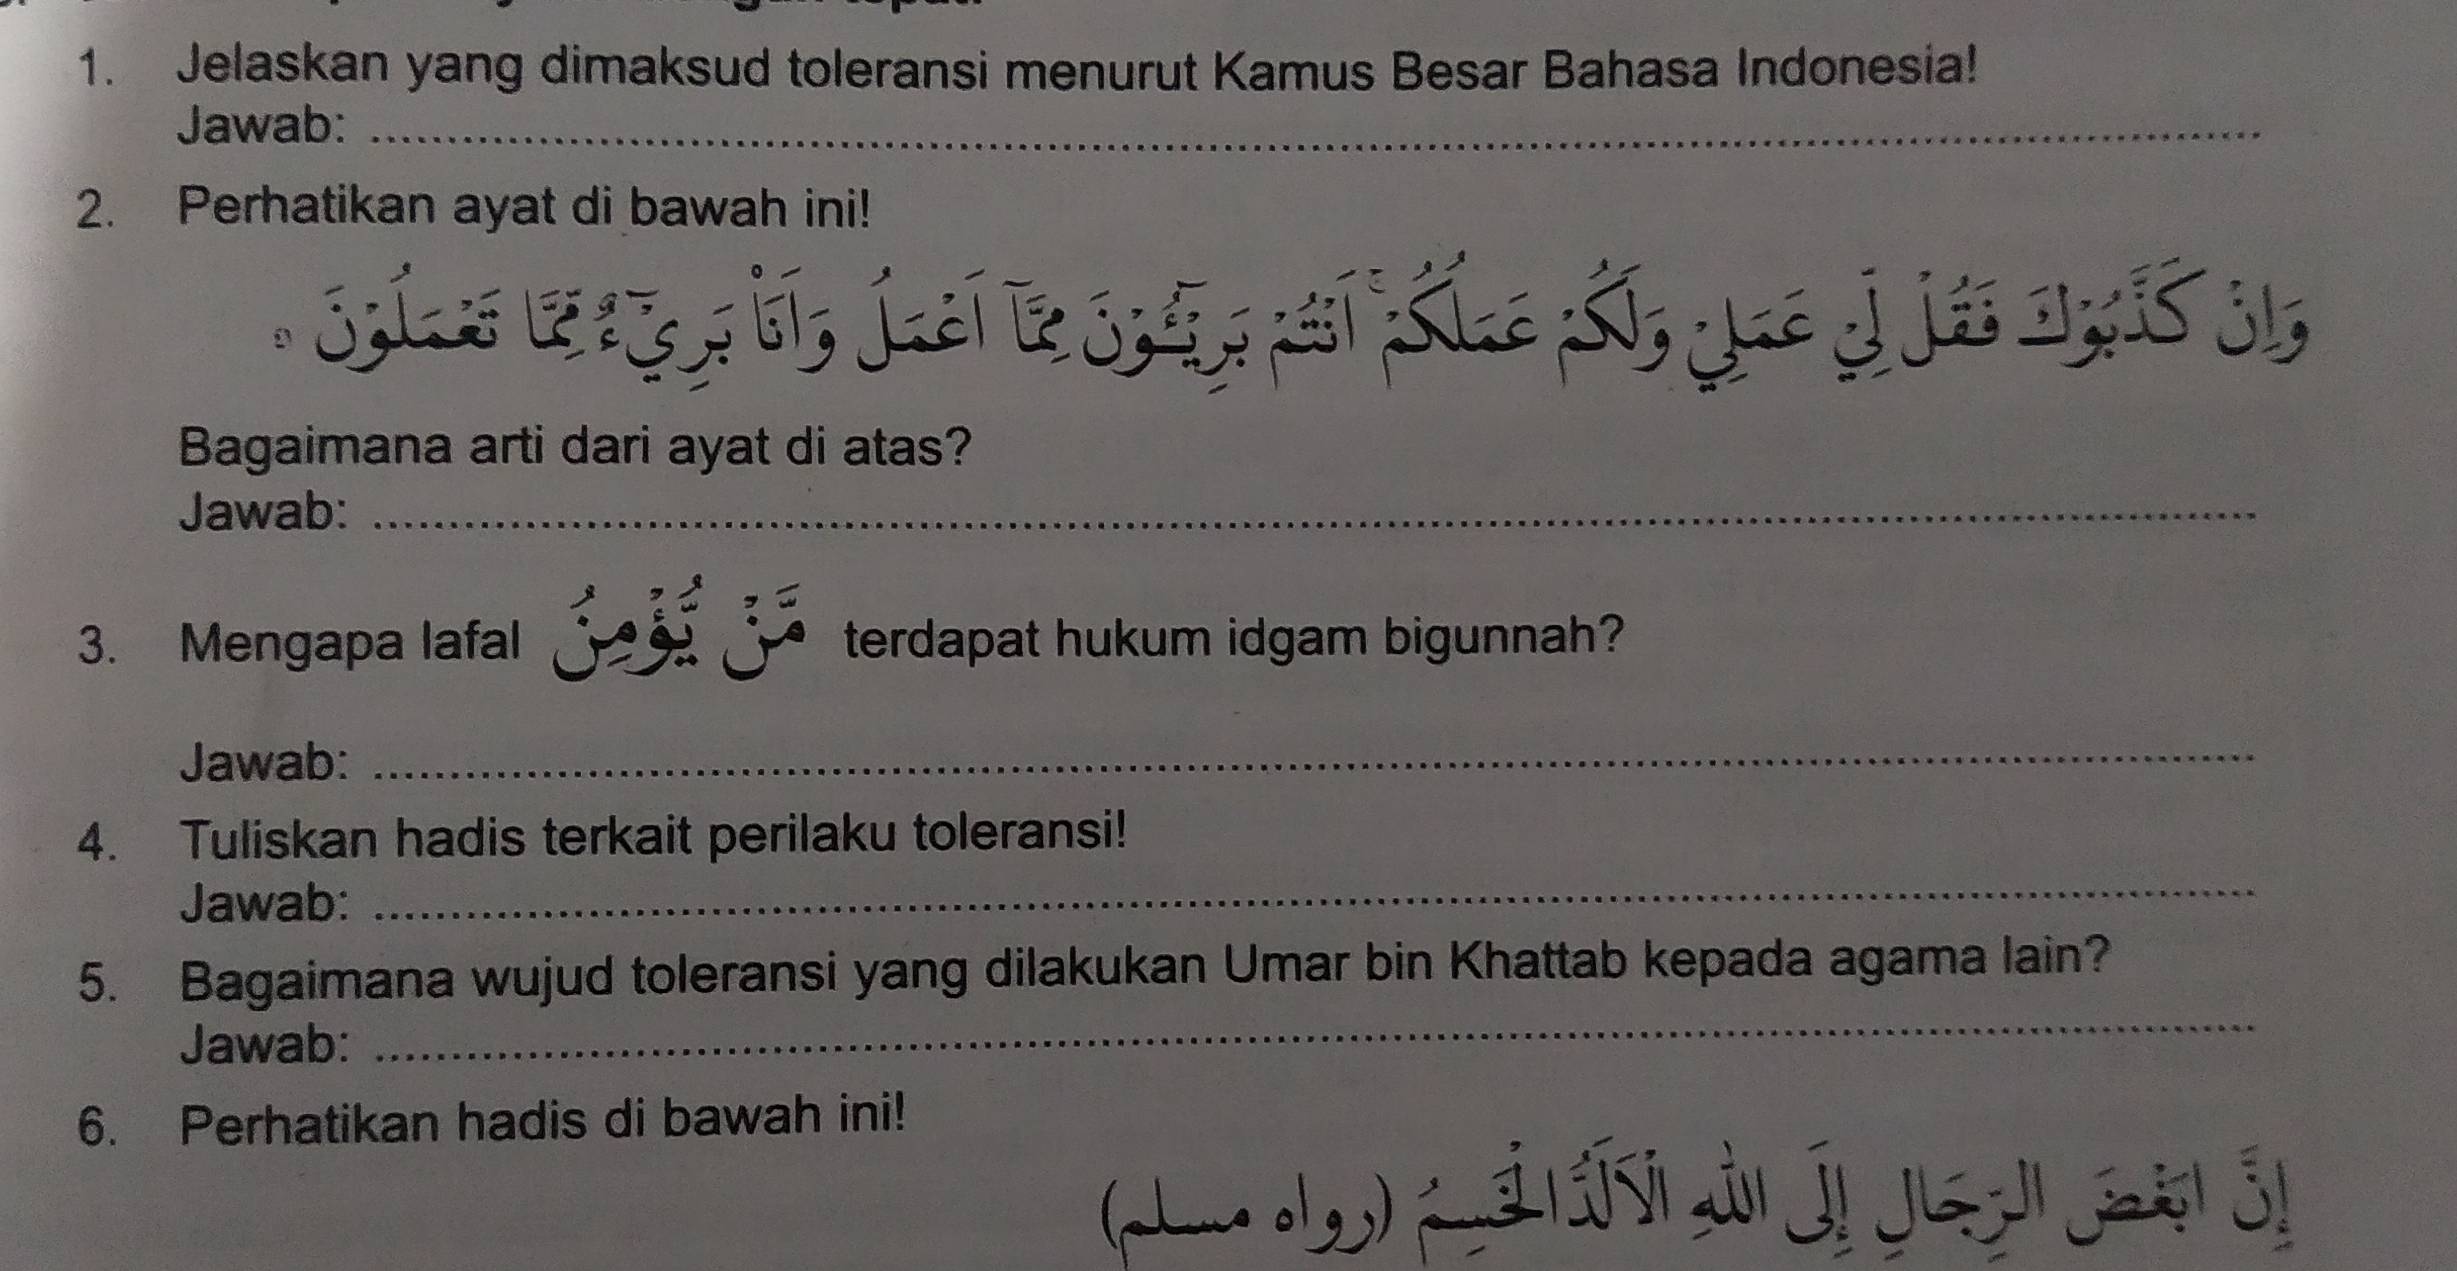 1. Jelaskan yang dimaksud toleransi menurut Kamus Besar Bahasa Indonesia!
Jawab: ........................................................................
2. Perhatikan ayat di bawah ini!
وَاِنْ كَذَّبُوْكَ فَقُلْ لِّيْ عَمَلِيْ وَلَكُمْ عَمَلُكُمْۚ اَنْتُمْ بَرِيْۤـُٔوْنَ مِمَّآ اَعْمَلُ وَاَنَا۠ بَرِيْۤءٌ مِّمَّا تَعْمَلُوْنَ ۝
Bagaimana arti dari ayat di atas?
Jawab: ........................................................................
3. Mengapa lafal مَّنْ يُّؤْمِنُ terdapat hukum idgam bigunnah?
Jawab: ........................................................................
4. Tuliskan hadis terkait perilaku toleransi!
Jawab: ........................................................................
5. Bagaimana wujud toleransi yang dilakukan Umar bin Khattab kepada agama lain?
Jawab: ........................................................................
6. Perhatikan hadis di bawah ini!
إِنَّ اَبْغَضَ الرِّجَالِ إِلَى اللهِ الْأَلَدُّ الْخَسِمُ (رواه مسلم)